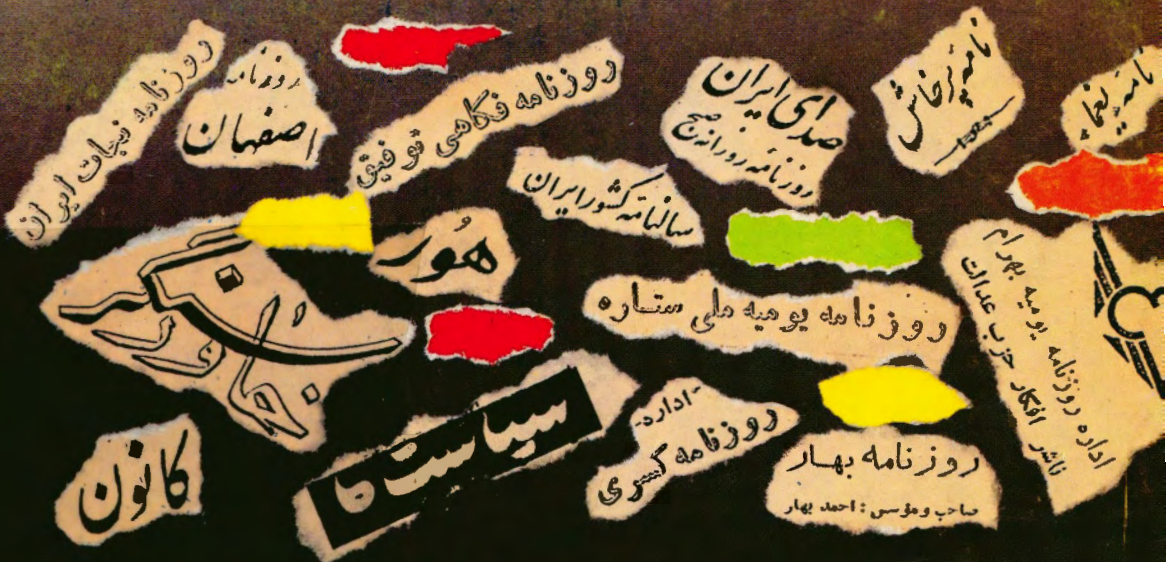 روزنامه نجات ایران
روزنامه
اصفهان
روزنامه فکاهی توفیق
صدای ایران
روزنامه روزانه صبح
نامه پرخاش
نامه یغما
سالنامه کشور ایران
هُور
روزنامه یومیه ملی ستاره
اداره روزنامه یومیه بهرام
ناشر افکار حزب عدالت
کانون
سیاست ما
اداره
روزنامه کسری
روزنامه بهار
صاحب و مؤسس : احمد بهار